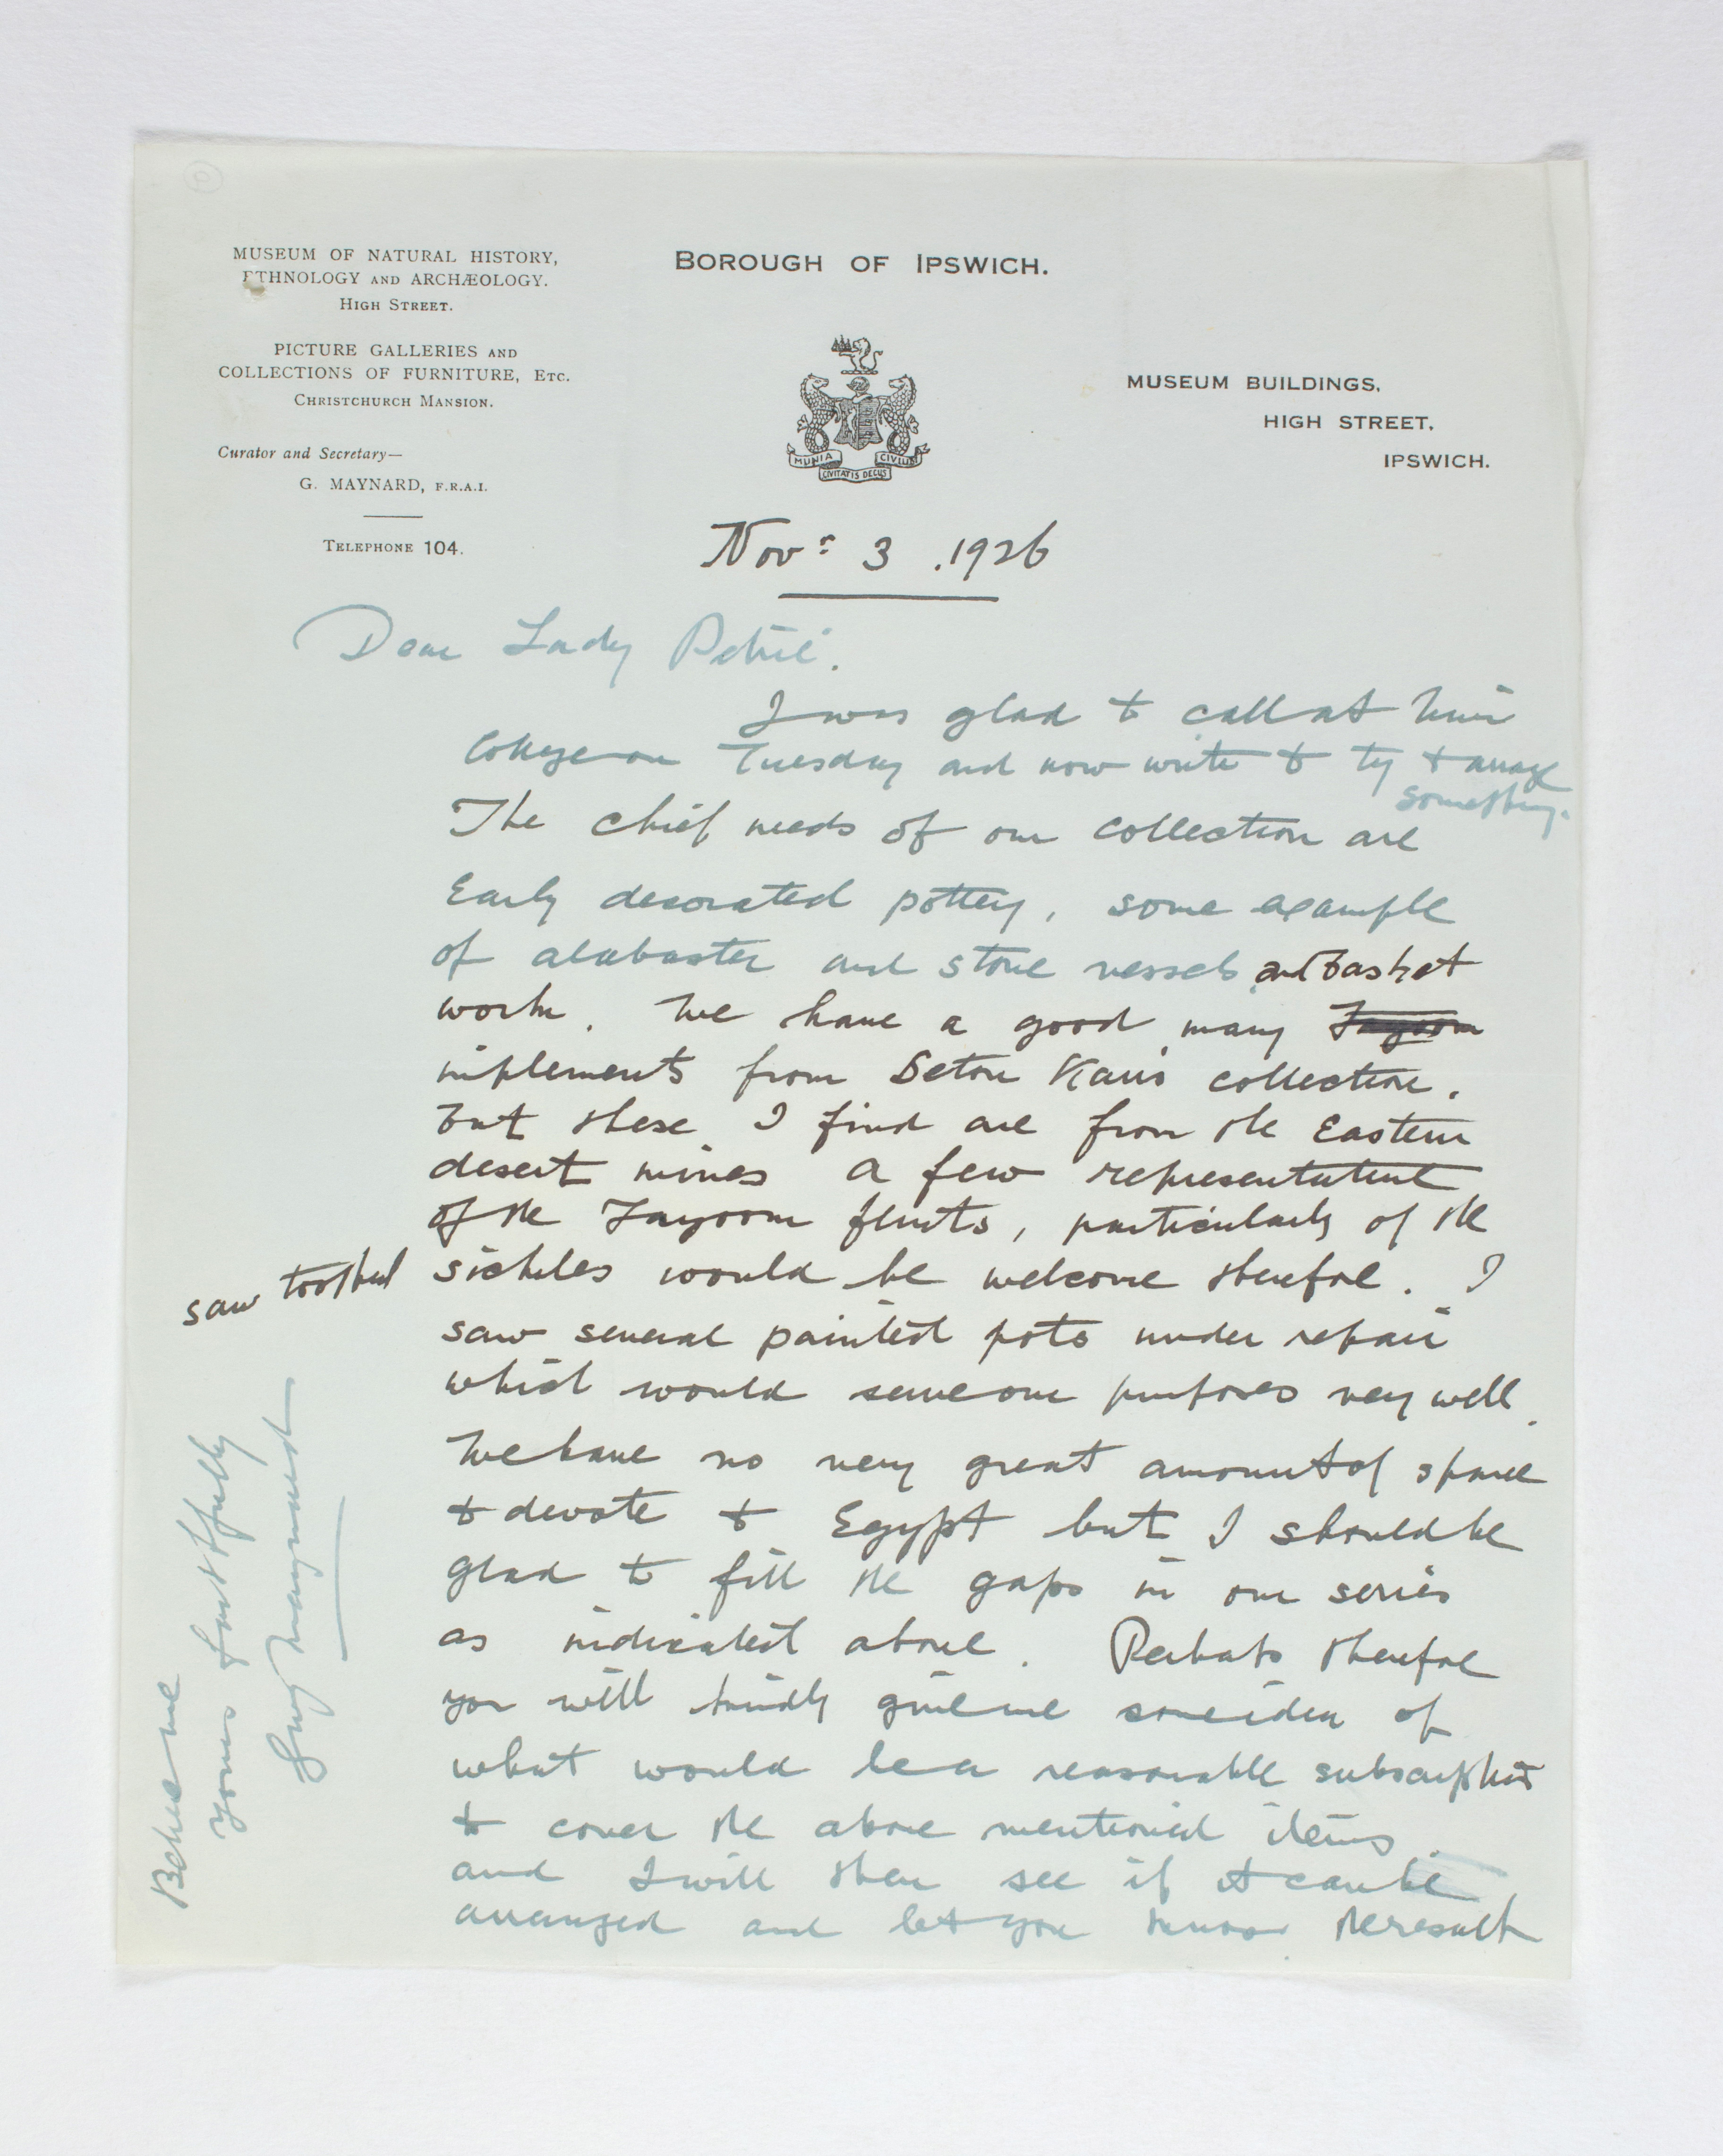 MUSEUM OF NATURAL HISTORY,
ETHNOLOGY AND ARCHÆOLOGY.
HIGH STREET.
PICTURE GALLERIES AND
COLLECTIONS OF FURNITURE, ETC.
CHRISTCHURCH MANSION.
Curator and Secretary—
G. MAYNARD, F.R.A.I.
TELEPHONE 104.
BOROUGH OF IPSWICH.
MUNIA CIVIUM
CIVITATIS DECUS
MUSEUM BUILDINGS,
HIGH STREET,
IPSWICH.
Novr 3 .1926
Dear Lady Petrie.
I was glad to call at Univ
College on Tuesday and now write to try to arrange
something.
The chief needs of our collection are
Early decorated pottery, some example
of alabaster and stone vessels and basket
work. We have a good many Fayoom
implements from Seton Karr's collection.
but these I find are from the Eastern
desert mines a few representative
of the Fayoom flints, particularly of the
saw toothed sickles would be welcome therefore. I
saw several painted pots under repair
which would serve our purposes very well.
We have no very great amount of space
to devote to Egypt but I should be
glad to fill the gaps in our series
as indicated above. Perhaps therefore
you will kindly give me some idea of
what would be a reasonable subscription
to cover the above mentioned items
and I will then see if it can be
arranged and let you know the result
Believe me
yours faithfully
Guy Maynard